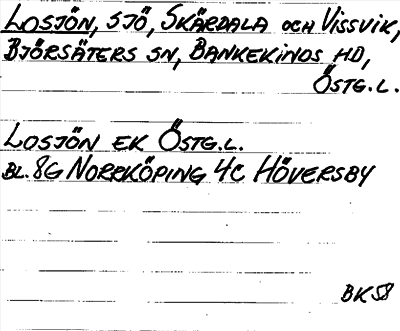 Losjön, sjö, Skärdala och Vissvik,
Björsäters sn, Bankekinds hd,
Östg.l.
Losjön ek Östg.l.
bl. 8G Norrköping 4c Höversby
BK58